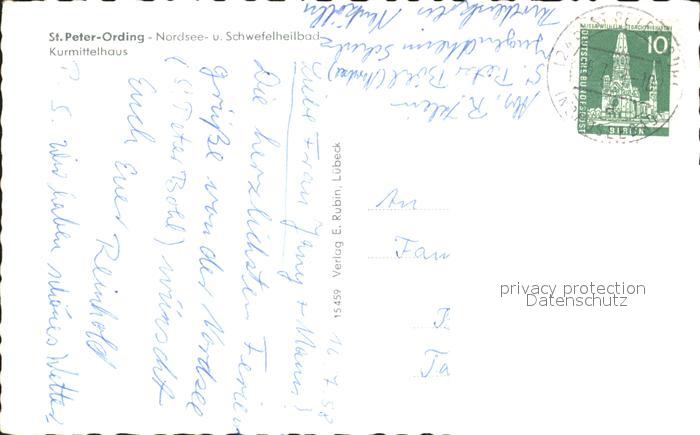 St. Peter-Ording - Nordsee- u. Schwefelheilbad
Kurmittelhaus
14.7.58
Liebe Frau Jany + Mann!
Die herzlichsten Ferien
grüße von der Nordsee
(St. Peter Böhl) wünscht
Euch Euer Reinhold
P. S. Wir haben schönes Wetter
Abs. R. Klein
St. Peter Böhl (Nordsee)
Jugendheim
15459 Verlag E. Rubin, Lübeck
10
DEUTSCHE BUNDESPOST
BERLIN
An
Fam
privacy protection
Datenschutz